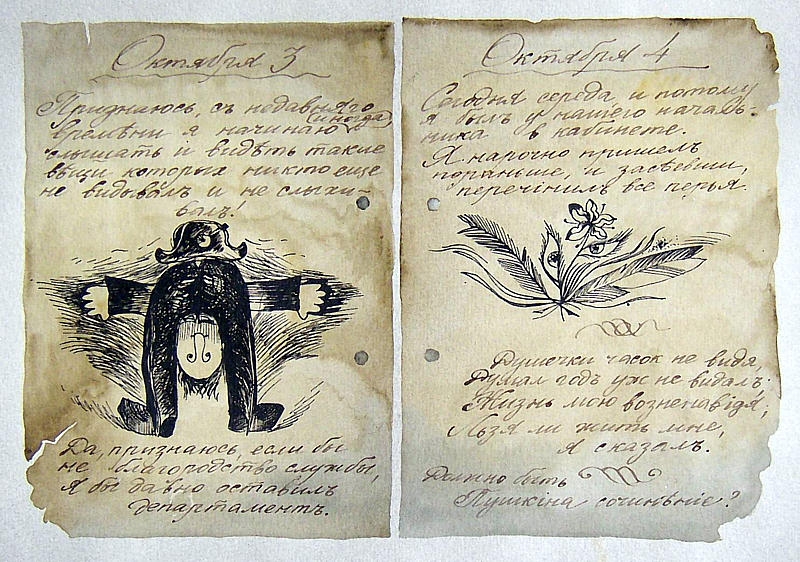 Октября 3
Признаюсь, съ недавняго
времѣни я начинаю (иногда)
слышать и видѣть такие
вѣщи которых никто еще
не видывалъ и не слыхи-
валъ!
Да, признаюсь, если бы
не благородство службы,
я бы давно оставилъ
департаментъ.
Октября 4
Сегодня середа, и потому
я былъ у нашего началь-
ника в кабинете.
Я нарочно пришелъ
пораньше, и засѣвши,
перечинилъ все перья.
Душечки часок не видя,
Думал годъ уж не видалъ;
Жизнь мою возненавидя,
Льзя ли жить мне,
я сказалъ.
Должно быть
Пушкина сочинѣние?